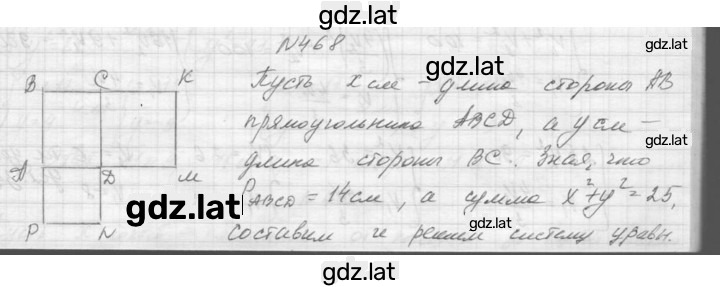 gdz.lat
N468
gdz.lat
gdz.lat
B C K
Пусть x см – длина стороны AB
прямоугольника ABCD, а y см –
gdz.lat
A D M
длина стороны BC. Зная, что
P ABCD = 14 см, а сумма x²+y²=25,
gdz.lat
gdz.lat
P N
составим и решим систему уравн.
gdz.lat